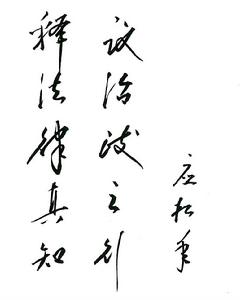 释法律真知
议治政之
应松年